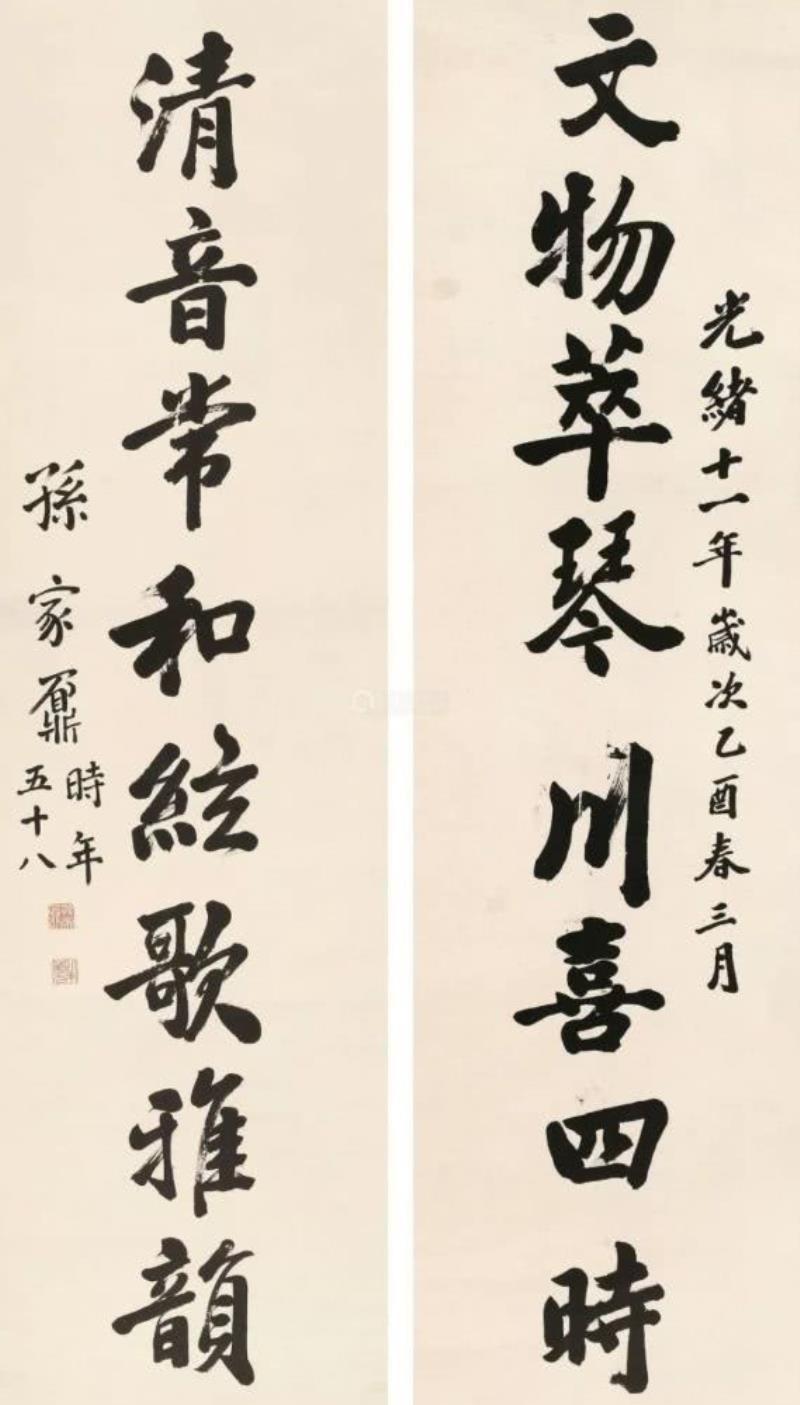 光緒十一年歲次乙酉春三月
文物萃琴川喜四時
清音常和絃歌雅韻
孫家鼐時年
五十八